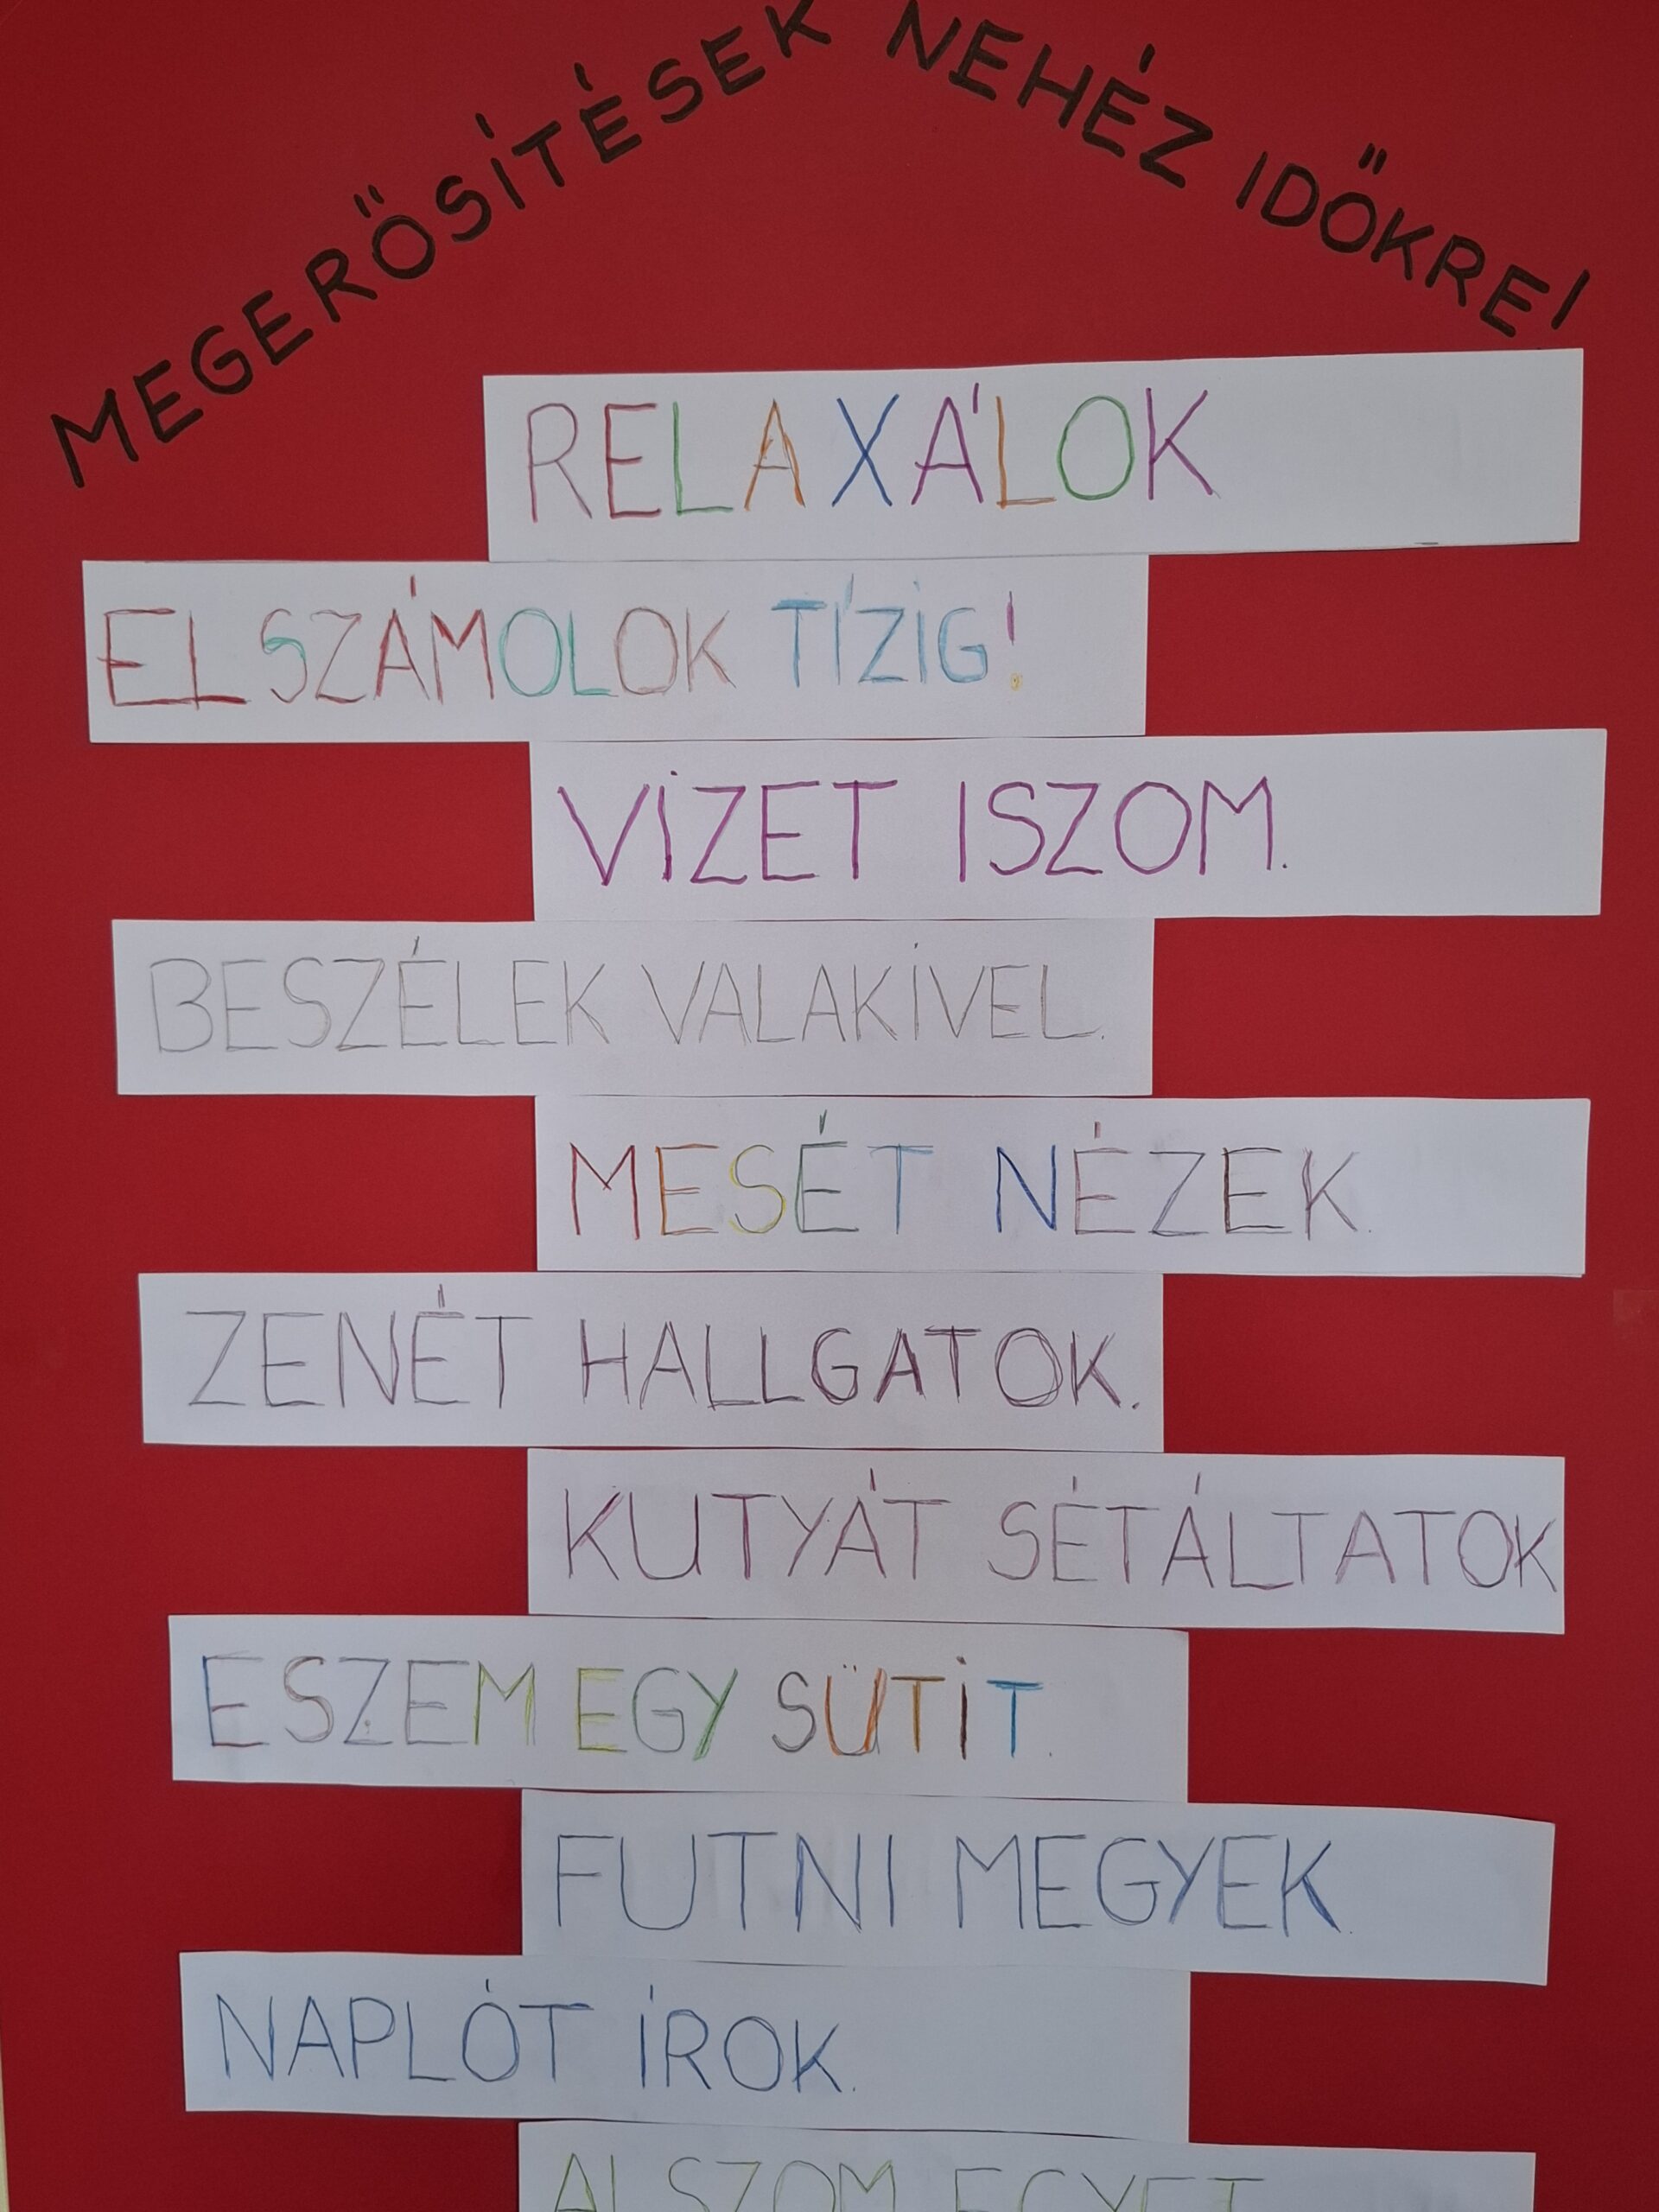 MEGERŐSÍTÉSEK NEHÉZ IDŐKRE!
RELAXÁLOK
ELSZÁMOLOK TÍZIG!
VIZET ISZOM.
BESZÉLEK VALAKIVEL.
MESÉT NÉZEK.
ZENÉT HALLGATOK.
KUTYÁT SÉTÁLTATOK
ESZEM EGY SÜTIT.
FUTNI MEGYEK.
NAPLÓT ÍROK.
ALSZOM EGYET